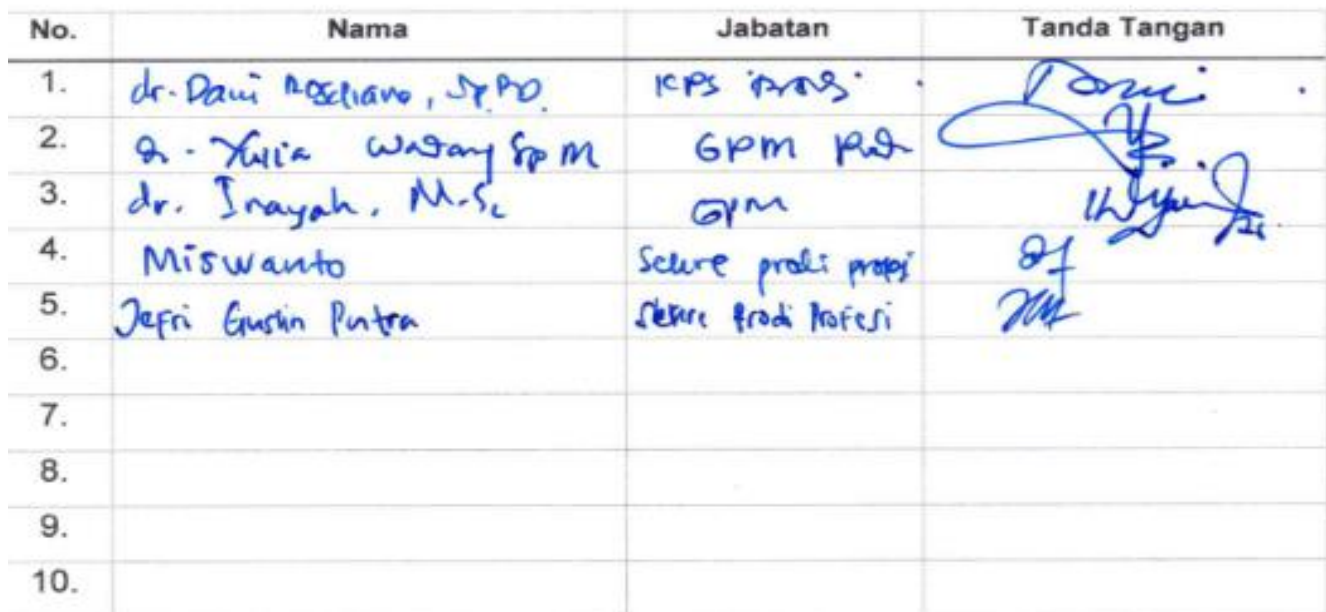 No. Nama Jabatan Tanda Tangan
1. dr. Dani Rosdiana, Sp.PD. KPS
2. dr. Yulia Wardany Sp M GPM
3. dr. Inayah, M.Sc GPM
4. Miswanto prodi profesi
5. Jefri Gustin Putra Prodi Profesi
6.
7.
8.
9.
10.